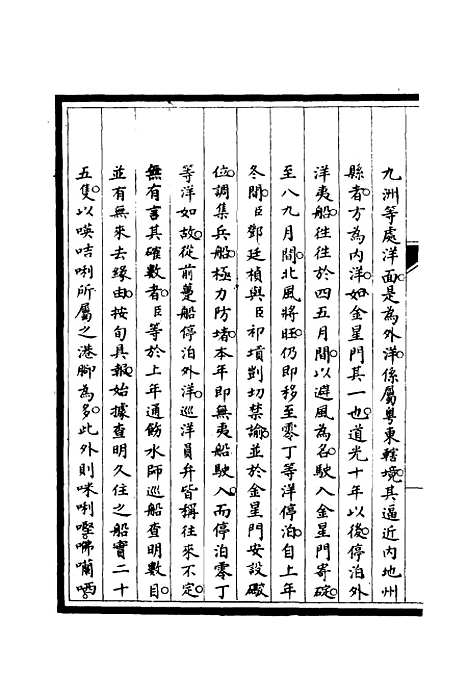 九洲等處洋面是為外洋係屬粵東轄境其逼近內地州
縣者方為內洋如金星門其一也道光十年以後停泊外
洋夷船往往於四五月間以避風為名駛入金星門寄碇
至八九月間北風將旺仍即移至零丁等洋停泊自上年
冬間臣鄧廷楨與臣祁𡎴剴切禁諭並於金星門安設礮
位調集兵船極力防堵本年即無夷船駛入而停泊零丁
等洋如故從前躉船停泊外洋巡洋員弁皆稱往來不定
無有言其確數者臣等於上年通飭水師巡船查明數目
並有無來去緣由按旬具報始據查明久住之船實二十
五隻以𠸄咭唎所屬之港腳為多此外則咪唎㗴咈囒哂